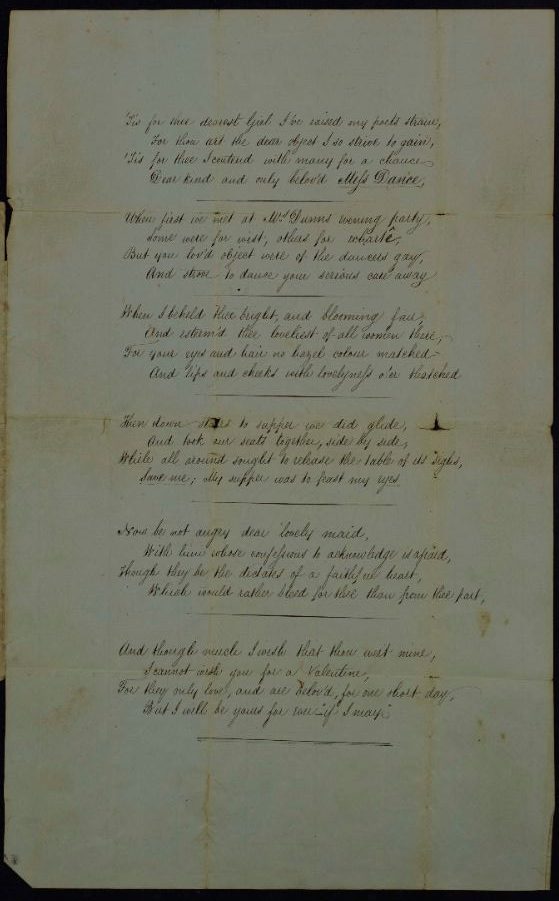 Tis for thee dearest Girl I've raised my poets strain,
For thou art the dear object I so strive to gain,
'Tis for thee I contend with many for a chance
Dear kind and only belov'd Miss Dance,
When first we met at Mrs Dunns evening party,
Some were for wist, others for ecartê,
But you lov'd object were of the dancers gay,
And strove to dance your serious care away
When I beheld thee bright, and blooming fair
And esteem'd thee loveliest of all women there,
For your eyes and hair no hazel colour matched
And lips and cheeks with lovelyness o'er thatched
Then down stairs to supper we did glide,
And took our seats together, side by side,
While all around sought to release the table of its
Save me; My supper was to feast my eyes
Now be not angry dear lovely maid,
With him whose confessions to acknowledge is afraid,
Though they be the dictates of a faithful heart,
Which would rather bleed for thee than from thee part,
And though much I wish that thou wert mine,
I cannot wish you for a Valentine,
For they only love, and are belov'd, for one short day,
But I will be yours for ever "if I may"